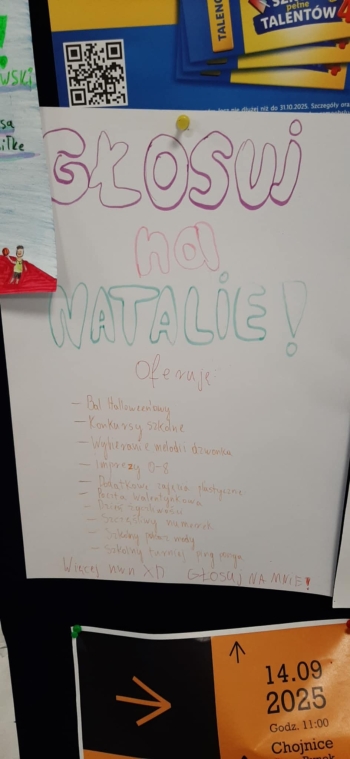 TALENC
pełne
TALENTÓW
nie dłużej niż do 31.10.2025. Szczegóły
WSKI
są
GŁOSUJ
na
NATALIE!
Oferuję:
- Bal Halloweenowy
- Konkursy szkolne
- Wybieranie melodii dzwonka
- Imprezy 0-8
- Dodatkowe zajęcia plastyczne
- Poczta walentynkowa
- Dzień
- Szczęśliwy numerek
- Szkolny pokaz mody
- Szkolny turniej ping ponga
Więcej nwn XD GŁOSUJ NA MNIE!
14.09
2025
Godz. 11:00
Chojnice